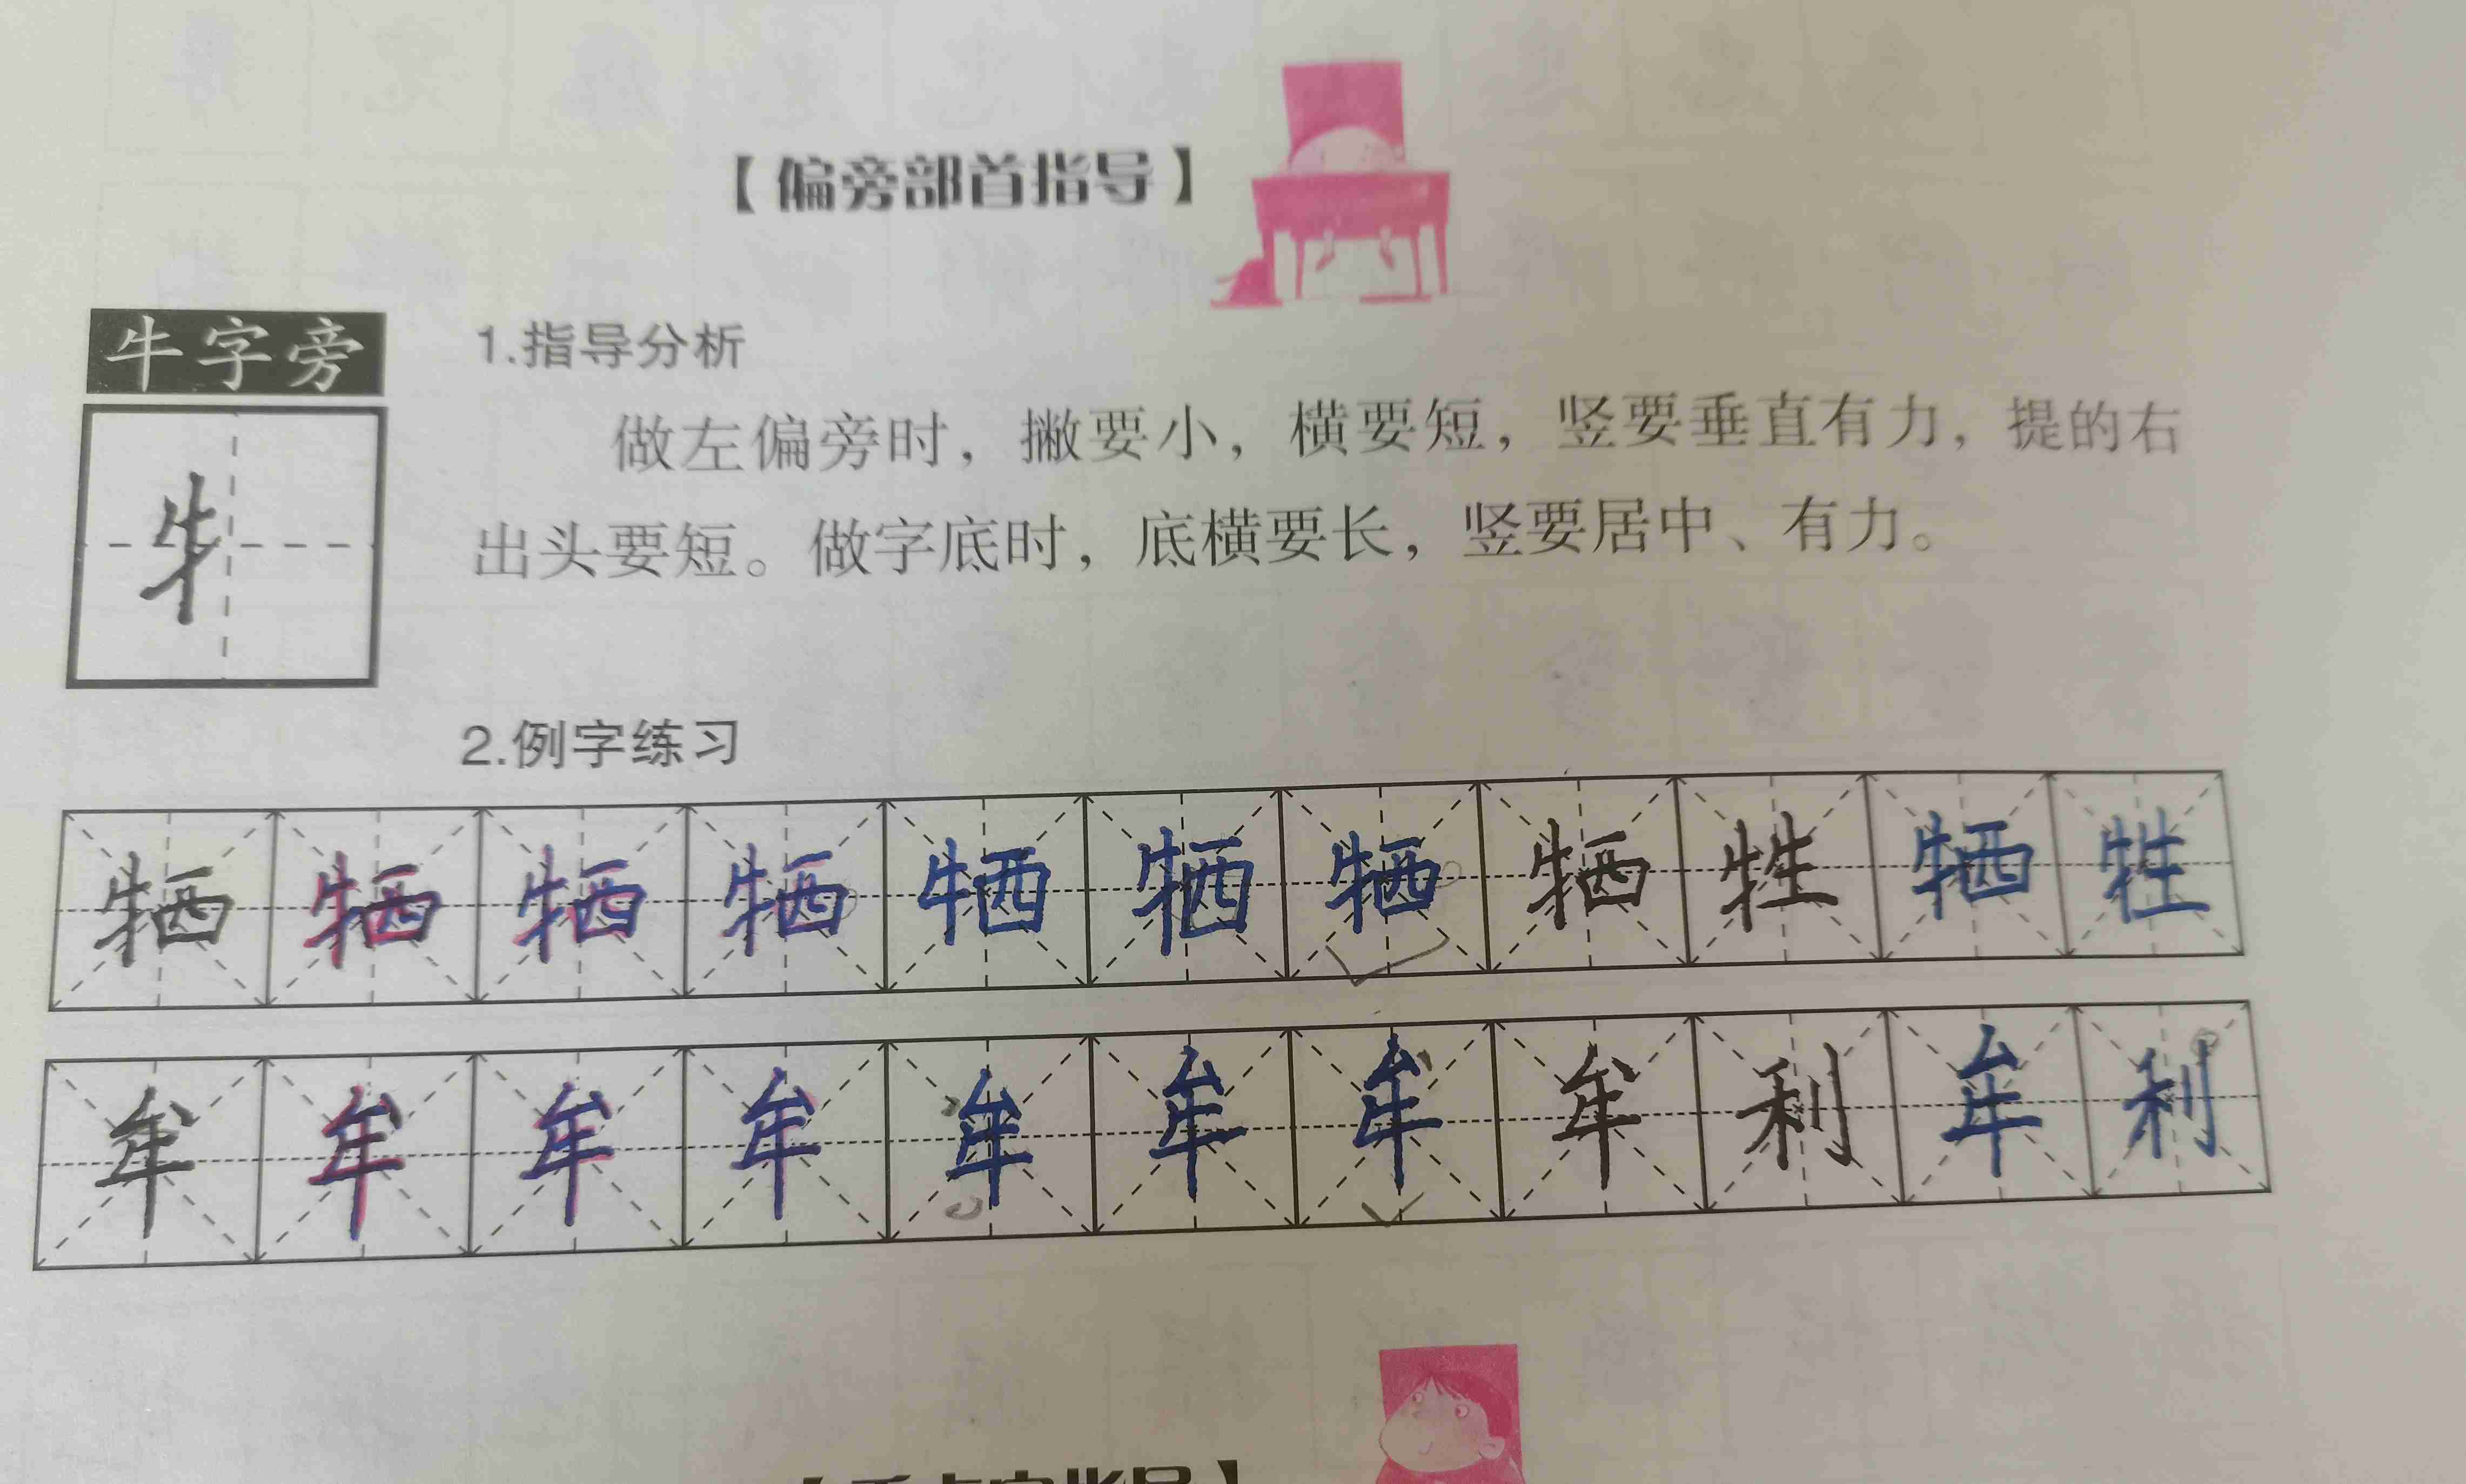 【偏旁部首指导】
牛字旁
牜
1.指导分析
做左偏旁时，撇要小，横要短，竖要垂直有力，提的右
出头要短。做字底时，底横要长，竖要居中、有力。
2.例字练习
牺牺牺牺牺牺牺牺牲牺牲
牟牟牟牟牟牟牟牟利牟利